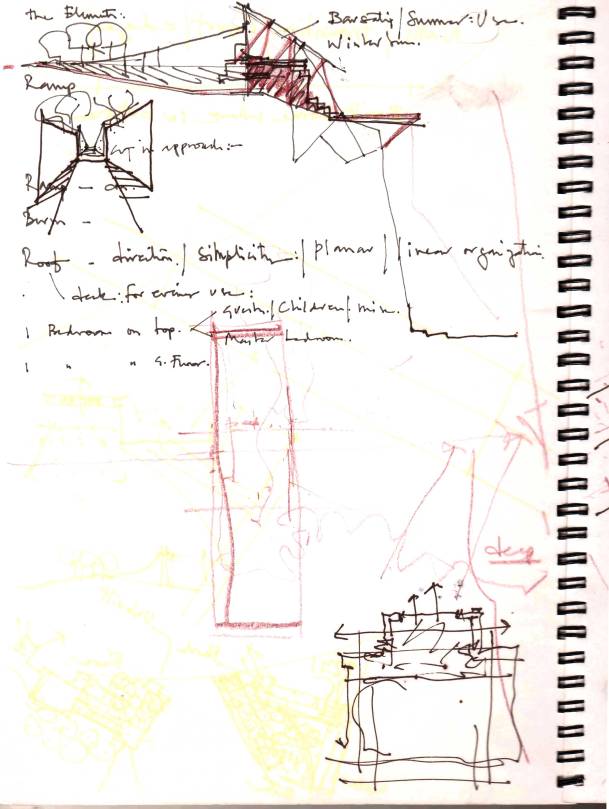 the Elements:
Barsati / Summer: Use.
Winter Sun.
Ramp
Cut in approach:-
Ramp -
Berm -
Roof - direction / Simplicity: / planar / linear organization.
deck: for evening use:
1 Bedroom on top. Guests / Children / misc.
Master bedroom.
1 " " G. Floor.
deep